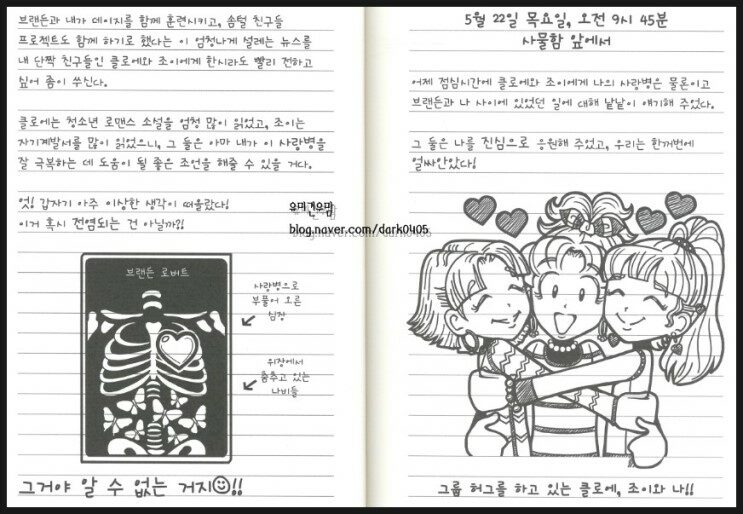 브랜든과 내가 데이지를 함께 훈련시키고, 솜털 친구들
프로젝트도 함께 하기로 했다는 이 엄청나게 설레는 뉴스를
내 단짝 친구들인 클로에와 조이에게 한시라도 빨리 전하고
싶어 좀이 쑤신다.
클로에는 청소년 로맨스 소설을 엄청 많이 읽었고, 조이는
자기계발서를 많이 읽었으니, 그 둘은 아마 내가 이 사랑병을
잘 극복하는 데 도움이 될 좋은 조언을 해줄 수 있을 거다.
엇! 갑자기 아주 이상한 생각이 떠올랐다!
이거 혹시 전염되는 건 아닐까?!
브랜든 로버트
사랑병으로
부풀어 오른
심장
위장에서
춤추고 있는
나비들
그거야 알 수 없는 거지!!
blog.naver.com/dark0405
5월 22일 목요일, 오전 9시 45분
사물함 앞에서
어제 점심시간에 클로에와 조이에게 나의 사랑병은 물론이고
브랜든과 나 사이에 있었던 일에 대해 낱낱이 얘기해 주었다.
그 둘은 나를 진심으로 응원해 주었고, 우리는 한꺼번에
얼싸안았다!
그룹 허그를 하고 있는 클로에, 조이와 나!!